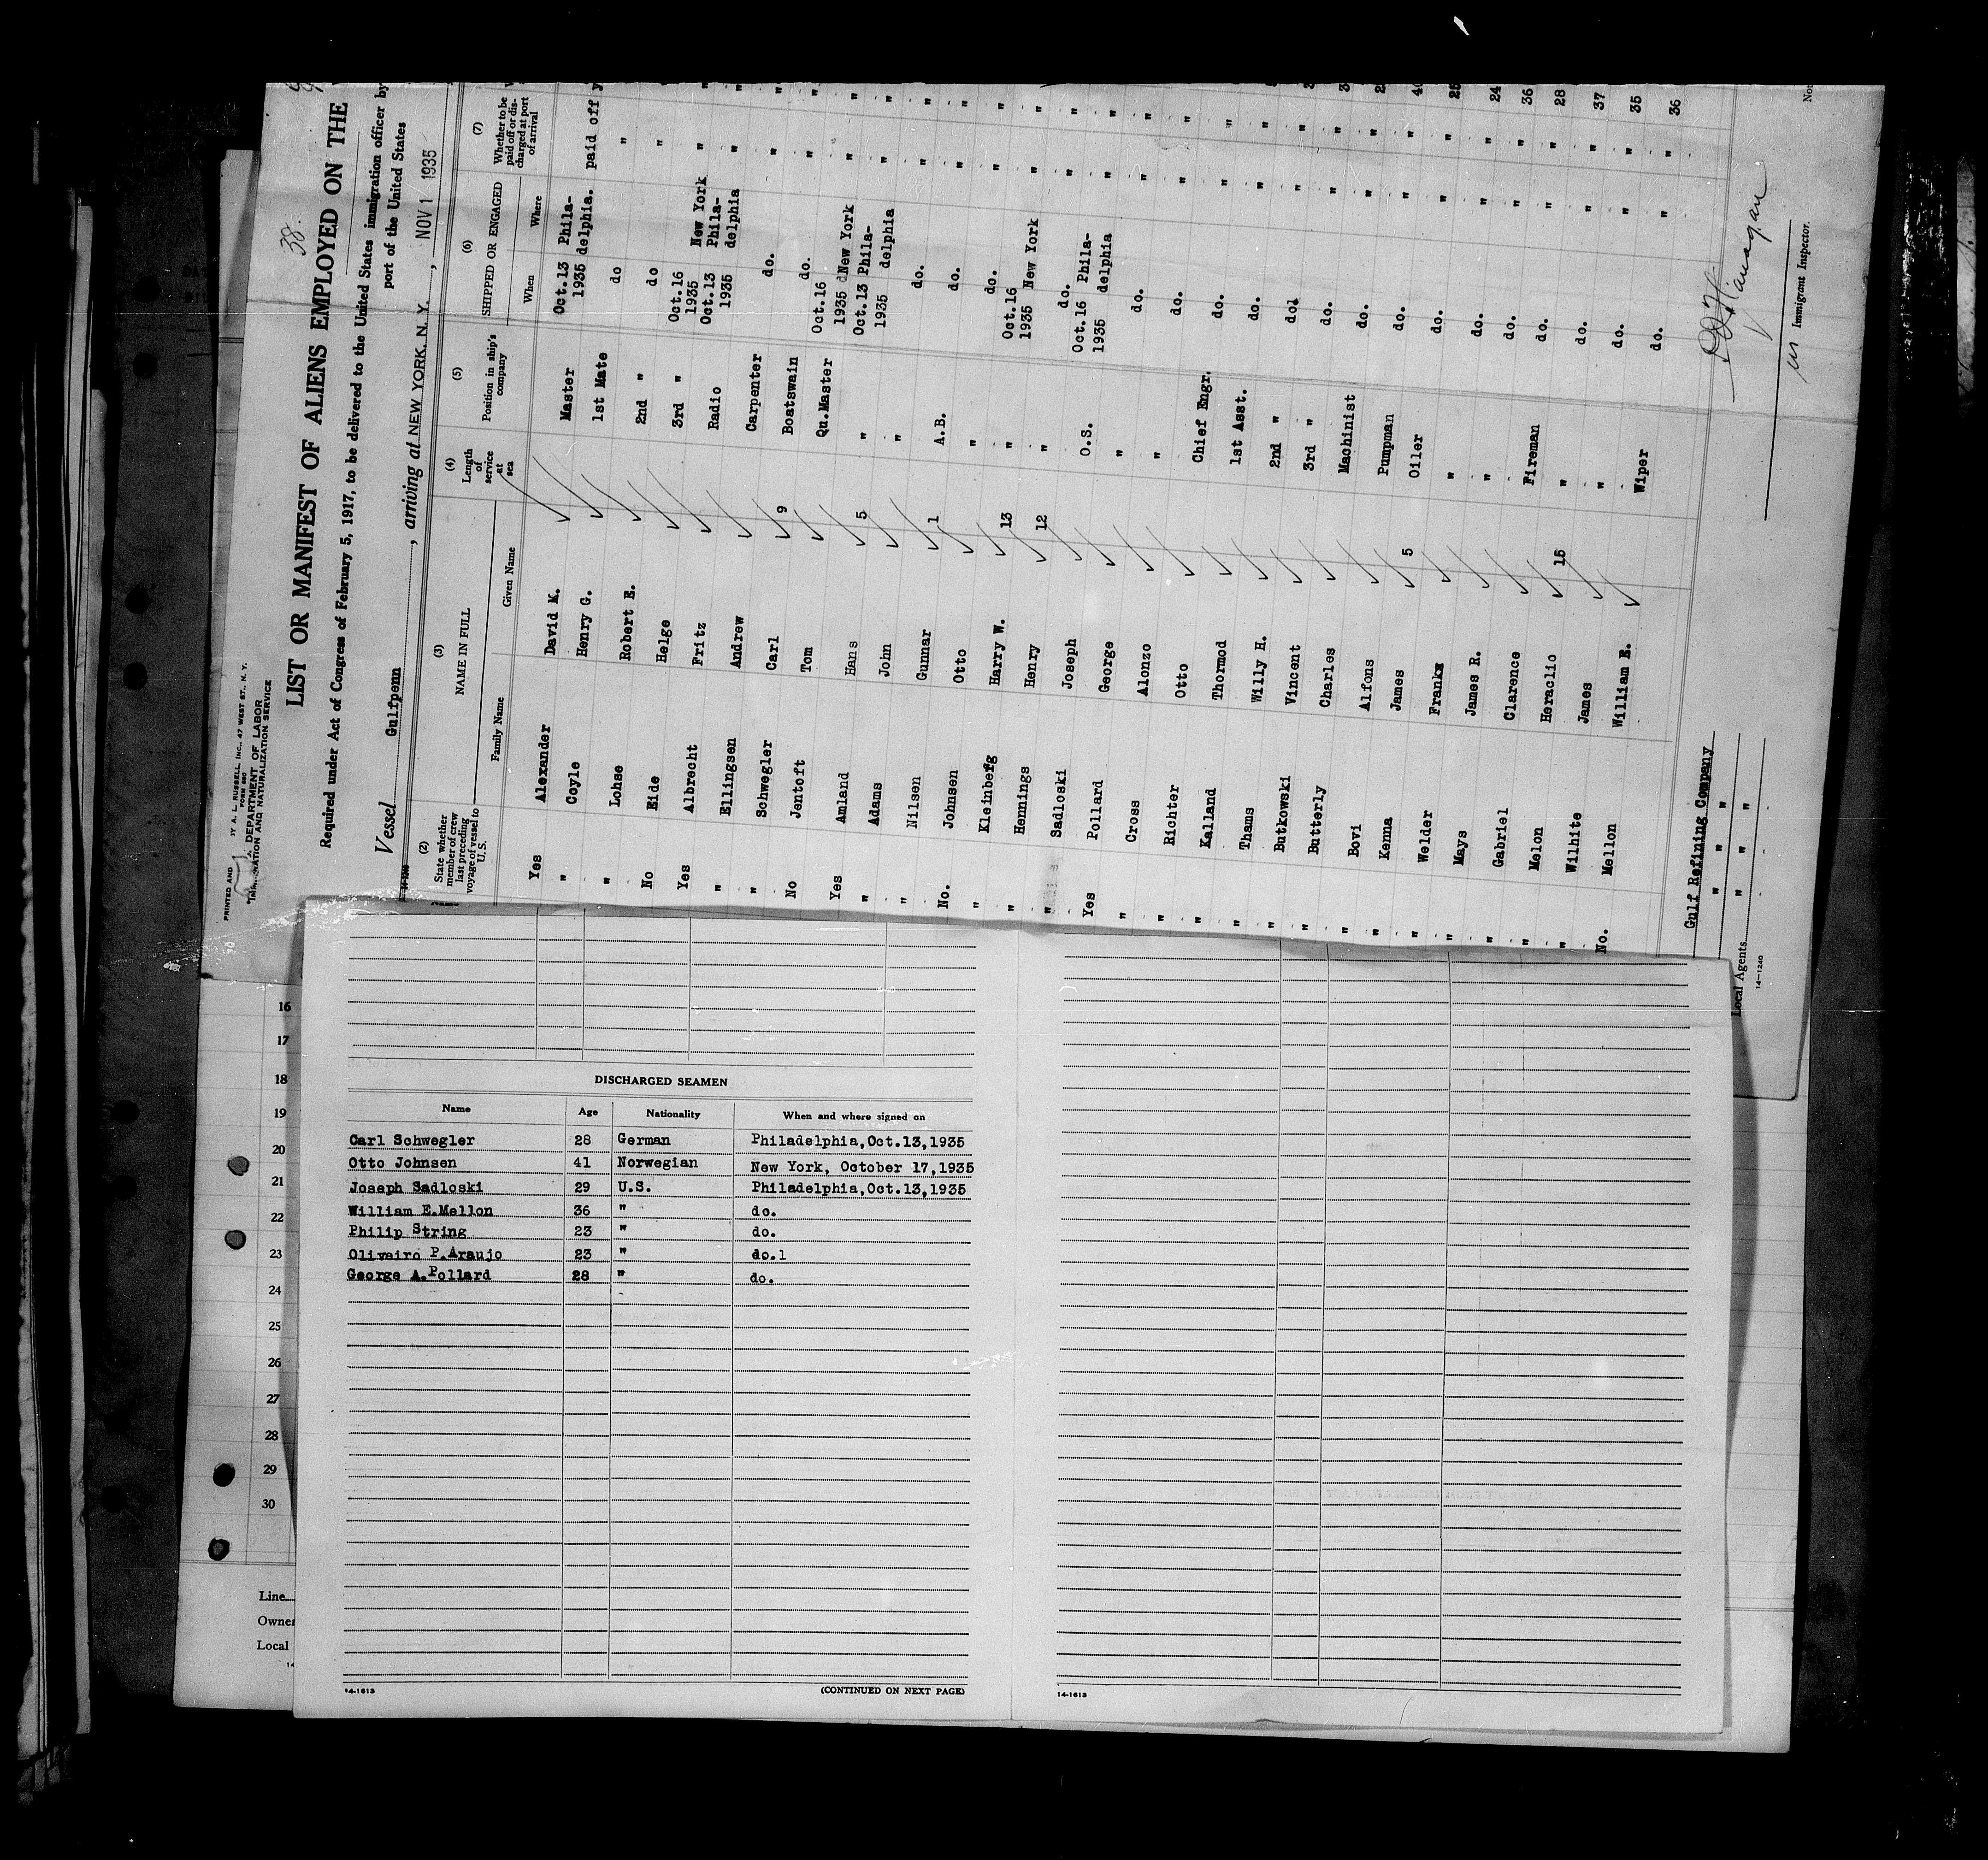 38.
PRINTED AND
BY A. L. RUSSELL, INC., 47 WEST ST., N. Y.
FORM 680
DEPARTMENT OF LABOR
IMMIGRATION AND NATURALIZATION SERVICE
LIST OR MANIFEST OF ALIENS EMPLOYED ON THE
Required under Act of Congress of February 5, 1917, to be delivered to the United States immigration officer by
port of the United States
Vessel Gulfpenn, arriving at NEW YORK, N. Y., NOV 1 1935
(2) State whether member of crew last preceding voyage of vessel to U.S.
(3) NAME IN FULL
Family Name Given Name
(4) Length of service at sea
(5) Position in ship's company
(6) SHIPPED OR ENGAGED
When Where
(7) Whether to be paid off or discharged at port of arrival
Yes Alexander David K. Master Oct.13 1935 Phila- delphia. paid off
" Coyle Henry G. 1st Mate do "
" Lohse Robert E. 2nd " do "
No Eide Helge 3rd " Oct.16 1935 New York "
Yes Albrecht Fritz Radio Oct.13 1935 Phila- delphia "
" Ellingsen Andrew Carpenter do. "
" Schwegler Carl 9 Boatswain do. "
No Jentoft Tom Qu.Master Oct.16 1935 New York "
Yes Amland Hans 5 " Oct.13 1935 Phila- delphia "
" Adams John " do. "
" Nilsen Gunnar 1 A.B. do. "
No. Johnsen Otto " do. "
" Kleinberg Harry W. 13 " Oct.16 1935 New York "
" Hennings Henry 12 " do. "
" Sadloski Joseph O.S. Oct.16 1935 Phila- delphia "
Yes Pollard George " do. "
" Cross Alonzo " do. "
" Richter Otto Chief Engr. do. "
" Kalland Thormod 1st Asst. do. "
" Thams Willy H. 2nd " do "
" Butkowski Vincent 3rd " do. "
" Butterly Charles Machinist do. "
" Bovi Alfons Pumpman do. "
" Kenna James 5 Oiler do. "
" Welder Frank " do. " 25
" Mays James R. " do. " 24
" Gabriel Clarence Fireman do. " 36
" Melon Heraclio 15 " do. " 28
" Wilhite James " do. " 37
No. Mellon William E. Wiper do. " 35
36
Gulf Refining Company
" " "
Local Agents " " "
14-1240
Immigrant Inspector.
16
17
18
19
20
21
22
23
24
25
26
27
28
29
30
Line
Owner
Local
14
DISCHARGED SEAMEN
Name Age Nationality When and where signed on
Carl Schwegler 28 German Philadelphia,Oct.13,1935
Otto Johnsen 41 Norwegian New York, October 17,1935
Joseph Sadloski 29 U.S. Philadelphia,Oct.13,1935
William E.Mellon 36 " do.
Philip String 23 " do.
Oliveiro P.Araujo 23 " do.1
George A.Pollard 28 " do.
14-1613 (CONTINUED ON NEXT PAGE)
14-1613